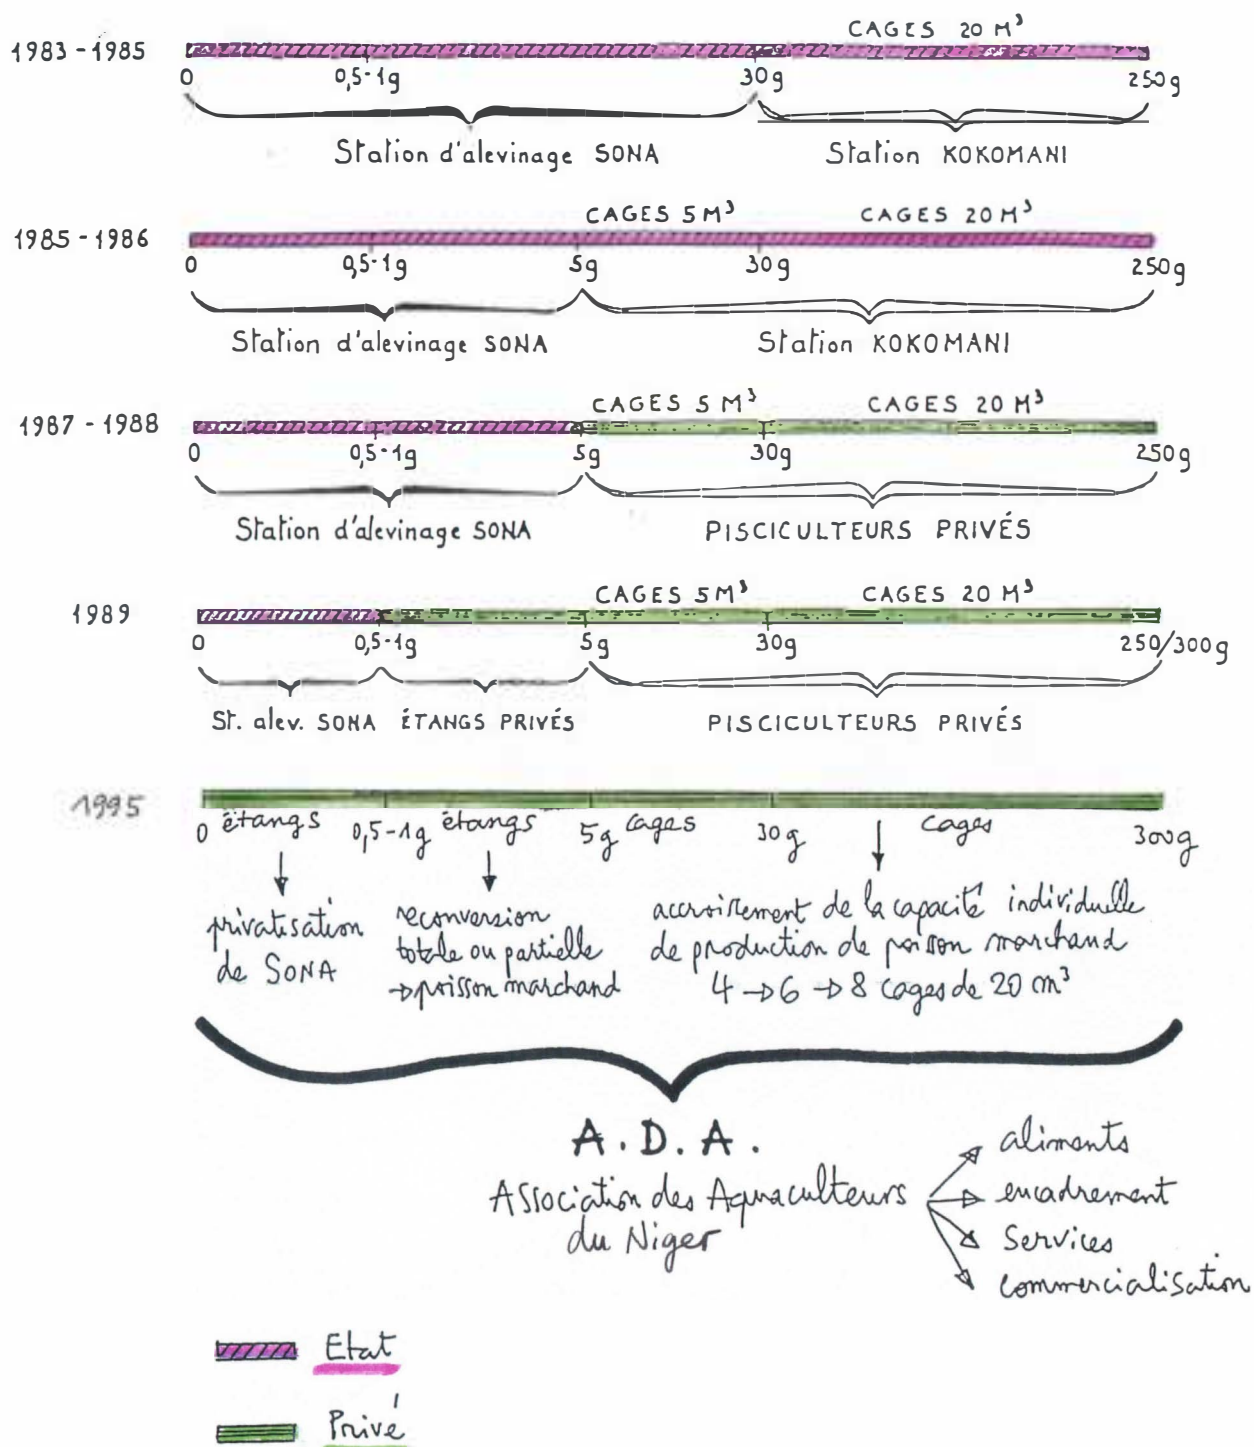 CAGES 20 M³
1983-1985
0 0,5-1g 30g 250g
Station d'alevinage SONA Station KOKOMANI
CAGES 5 M³ CAGES 20 M³
1985-1986
0 0,5-1g 5g 30g 250g
Station d'alevinage SONA Station KOKOMANI
CAGES 5 M³ CAGES 20 M³
1987-1988
0 0,5-1g 5g 30g 250g
Station d'alevinage SONA PISCICULTEURS PRIVÉS
CAGES 5 M³ CAGES 20 M³
1989
0 0,5-1g 5g 30g 250/300g
St. alev. SONA ÉTANGS PRIVÉS PISCICULTEURS PRIVÉS
1995
0 étangs 0,5-1g étangs 5g cages 30g cages 300g
privatisation
de SONA
reconversion
totale ou partielle
→ poisson marchand
accroissement de la capacité individuelle
de production de poisson marchand
4 → 6 → 8 cages de 20 m³
A.D.A.
Association des Aquaculteurs
du Niger
aliments
encadrement
Services
commercialisation
Etat
Privé